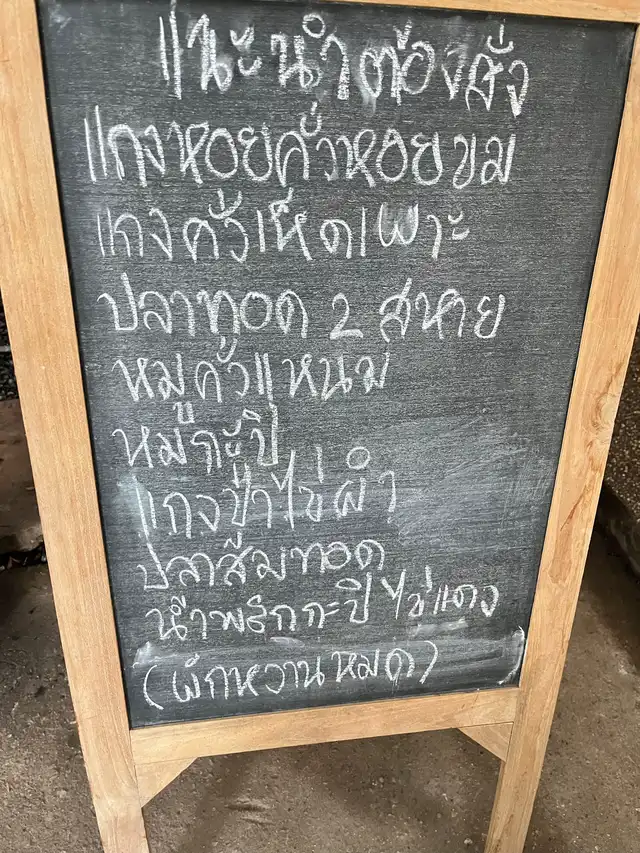 แนะนำต้องสั่ง
แกงหอยคั่วหอยขม
แกงคั่วเห็ดเพาะ
ปลาทูทอด 2 สหาย
หมูคั่วแหนม
หมูกะปิ
แกงป่าไข่ผำ
ปลาส้มทอด
น้ำพริกกะปิ ไข่แดง
(ผักหวานหมด)